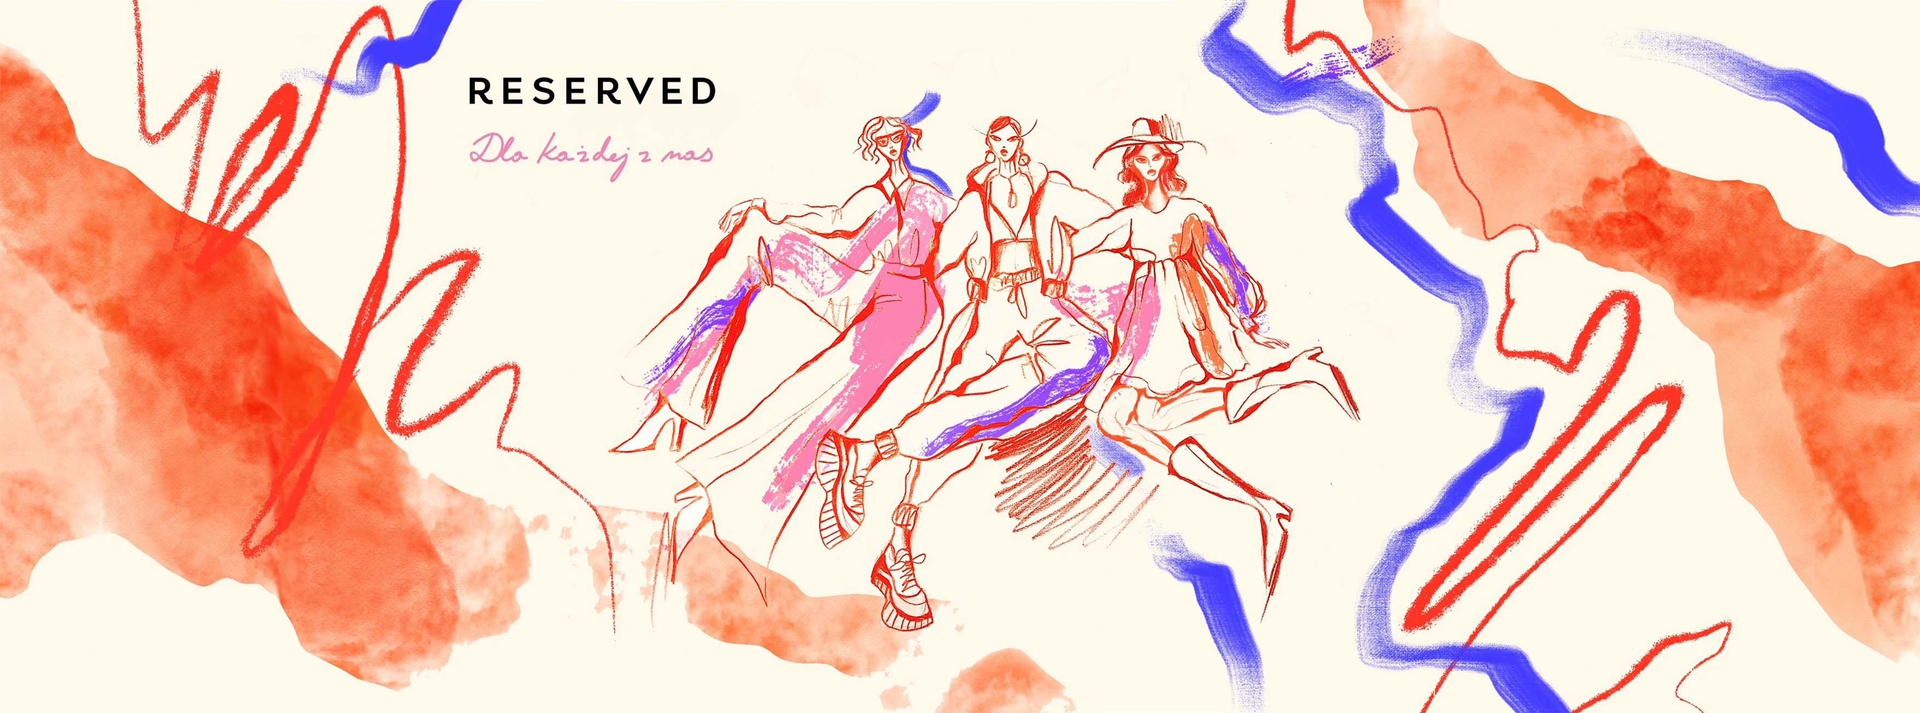 RESERVED
Dla każdej z nas